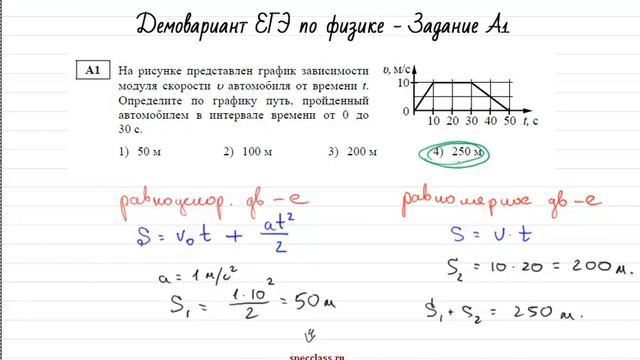 Демовариант ЕГЭ по физике - Задание А1
А1
На рисунке представлен график зависимости
модуля скорости υ автомобиля от времени t.
Определите по графику путь, пройденный
автомобилем в интервале времени от 0 до
30 с.
υ, м/с
10
0
10 20 30 40 50 t, с
1) 50 м 2) 100 м 3) 200 м 4) 250 м
равноускор. дв-е
S = v₀t + at²/2
a = 1 м/с²
S₁ = 1·10²/2 = 50 м
равномерное дв-е
S = v·t
S₂ = 10·20 = 200 м.
S₁ + S₂ = 250 м.
specclass.ru